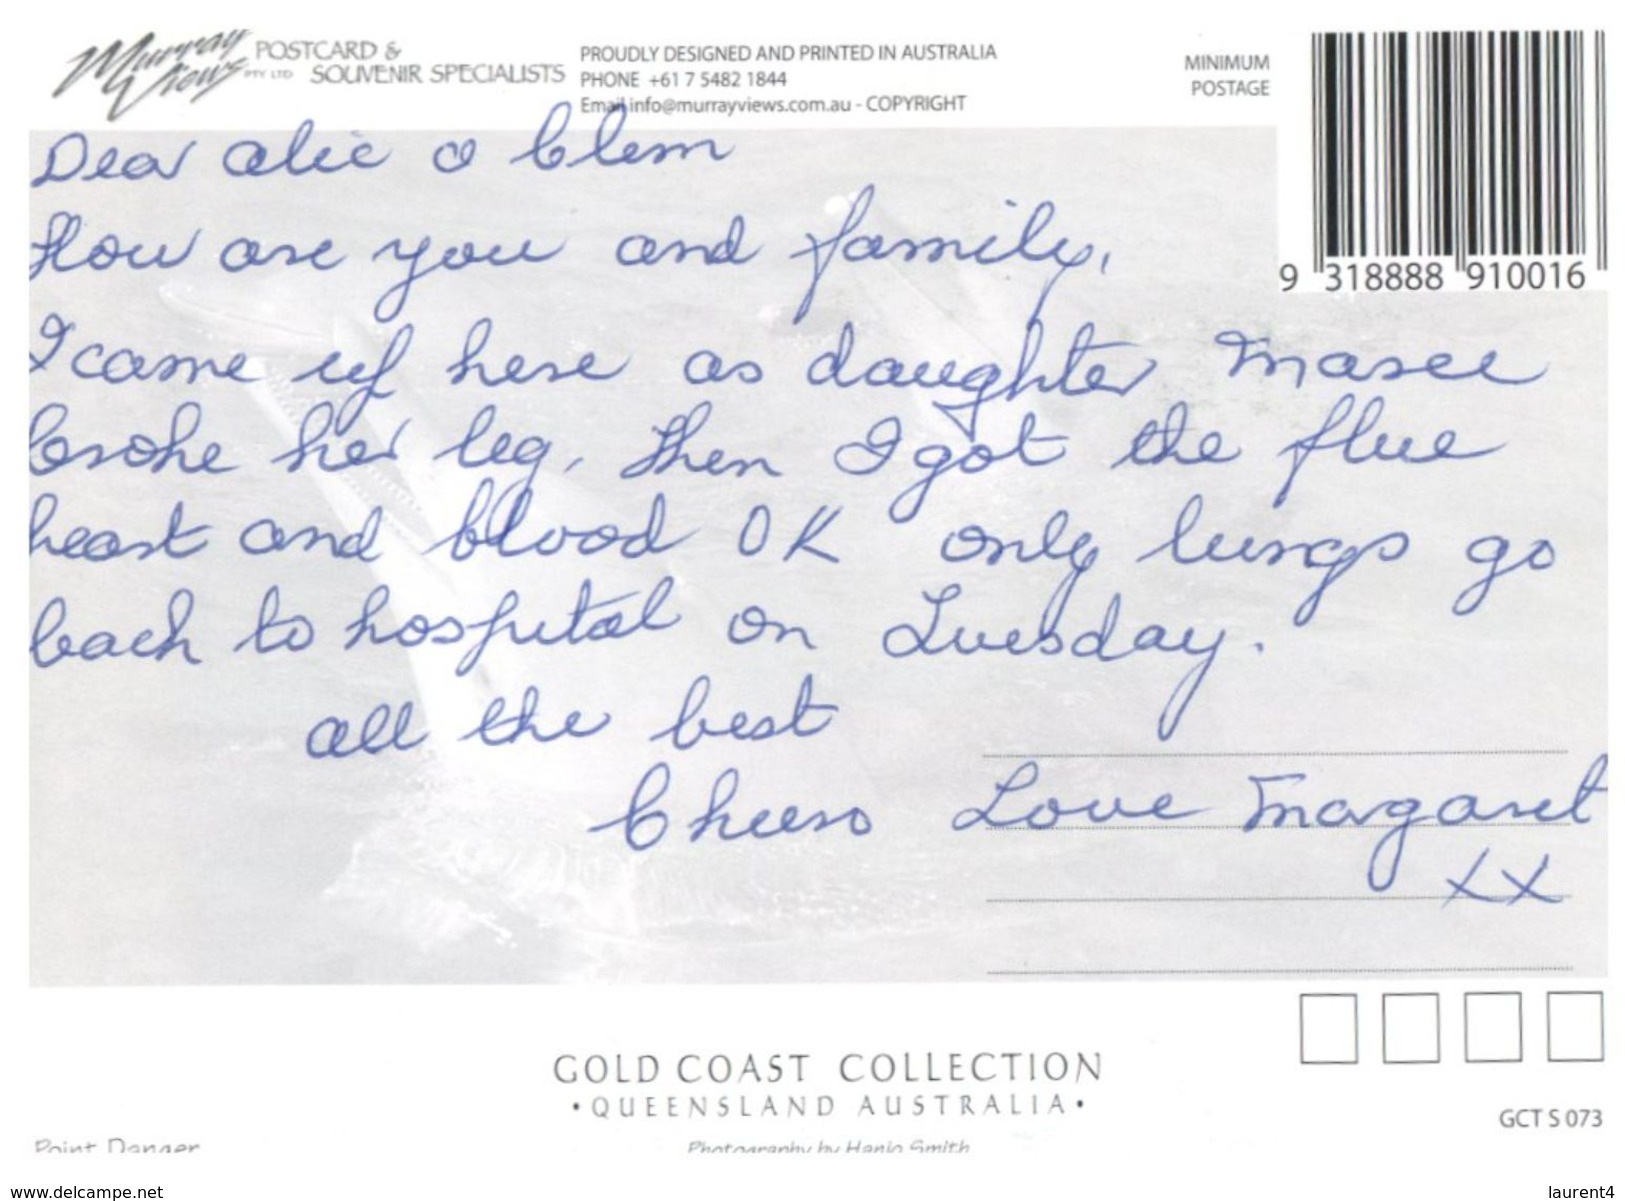 Murray Views PTY LTD POSTCARD & SOUVENIR SPECIALISTS
PROUDLY DESIGNED AND PRINTED IN AUSTRALIA
PHONE +61 7 5482 1844
Email info@murrayviews.com.au - COPYRIGHT
MINIMUM
POSTAGE
9 318888 910016
Dear alic & Clem
How are you and family,
I came up here as daughter
broke her leg, then I got the flue
heart and blood OK only lungs go
back to hospital on Tuesday.
all the best
Cheers Love Margaret
XX
GOLD COAST COLLECTION
• QUEENSLAND AUSTRALIA •
GCT S 073
Point Danger
Photography by Hanio Smith
www.delcampe.net
laurent4